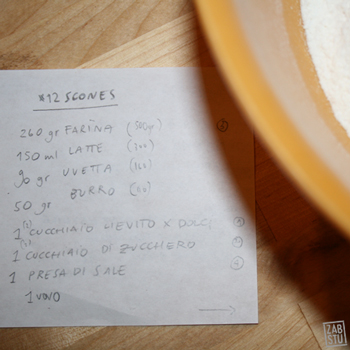 *12 SCONES
260 gr FARINA (500gr)
150 ml LATTE (300)
90 gr UVETTA
50 gr BURRO
1 CUCCHIAIO LIEVITO X DOLCI
1 CUCCHIAIO DI ZUCCHERO
1 PRESA DI SALE
1 UOVO
ZAB
STU